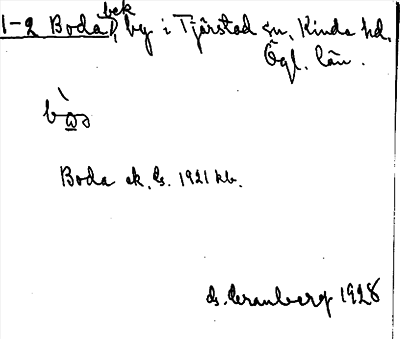 bek
1-2 Boda D, by i Tjärstad sn, Kinda hd.
Ögl. län.
Boda ek. ls. 1921 kb.
ds. Cranberg 1928